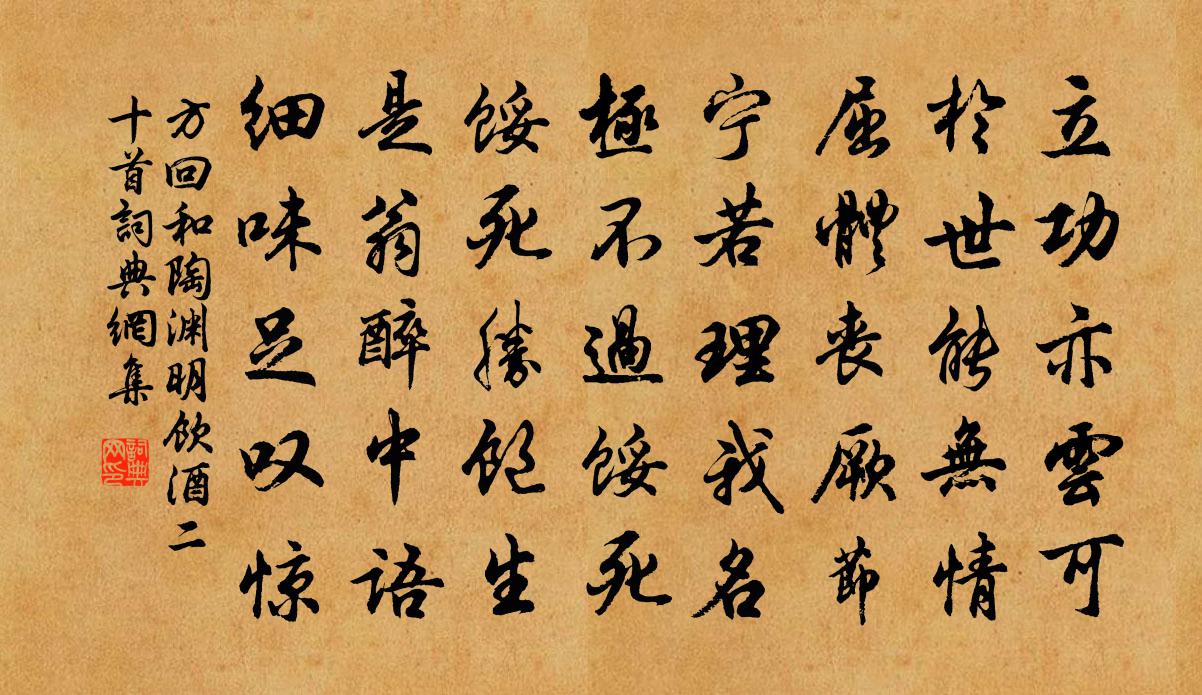 立功亦雲可
於世能無情
屈體喪厥節
宁若理我名
極不過餒死
餒死勝飽生
是翁醉中語
細味足叹惊
方回和陶渊明飲酒二
十首詞典網集
詞典网印